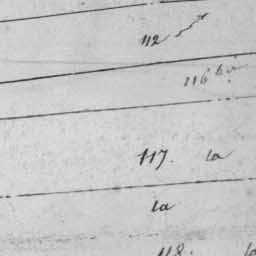 112
116 bis
117. la
la
118. la